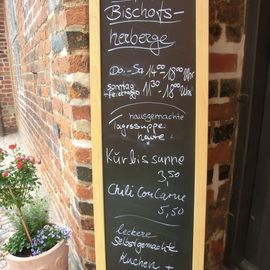 Bischofs-
herberge
Do.-Sa 14⁰⁰-18⁰⁰ Uhr
Sonntag
+Feiertags 11³⁰-18⁰⁰ Uhr
hausgemachte
Tagessuppe
heute:
Kürbissuppe
3,50
Chili Con Carne
5,50
leckere
selbstgemachte
Kuchen +